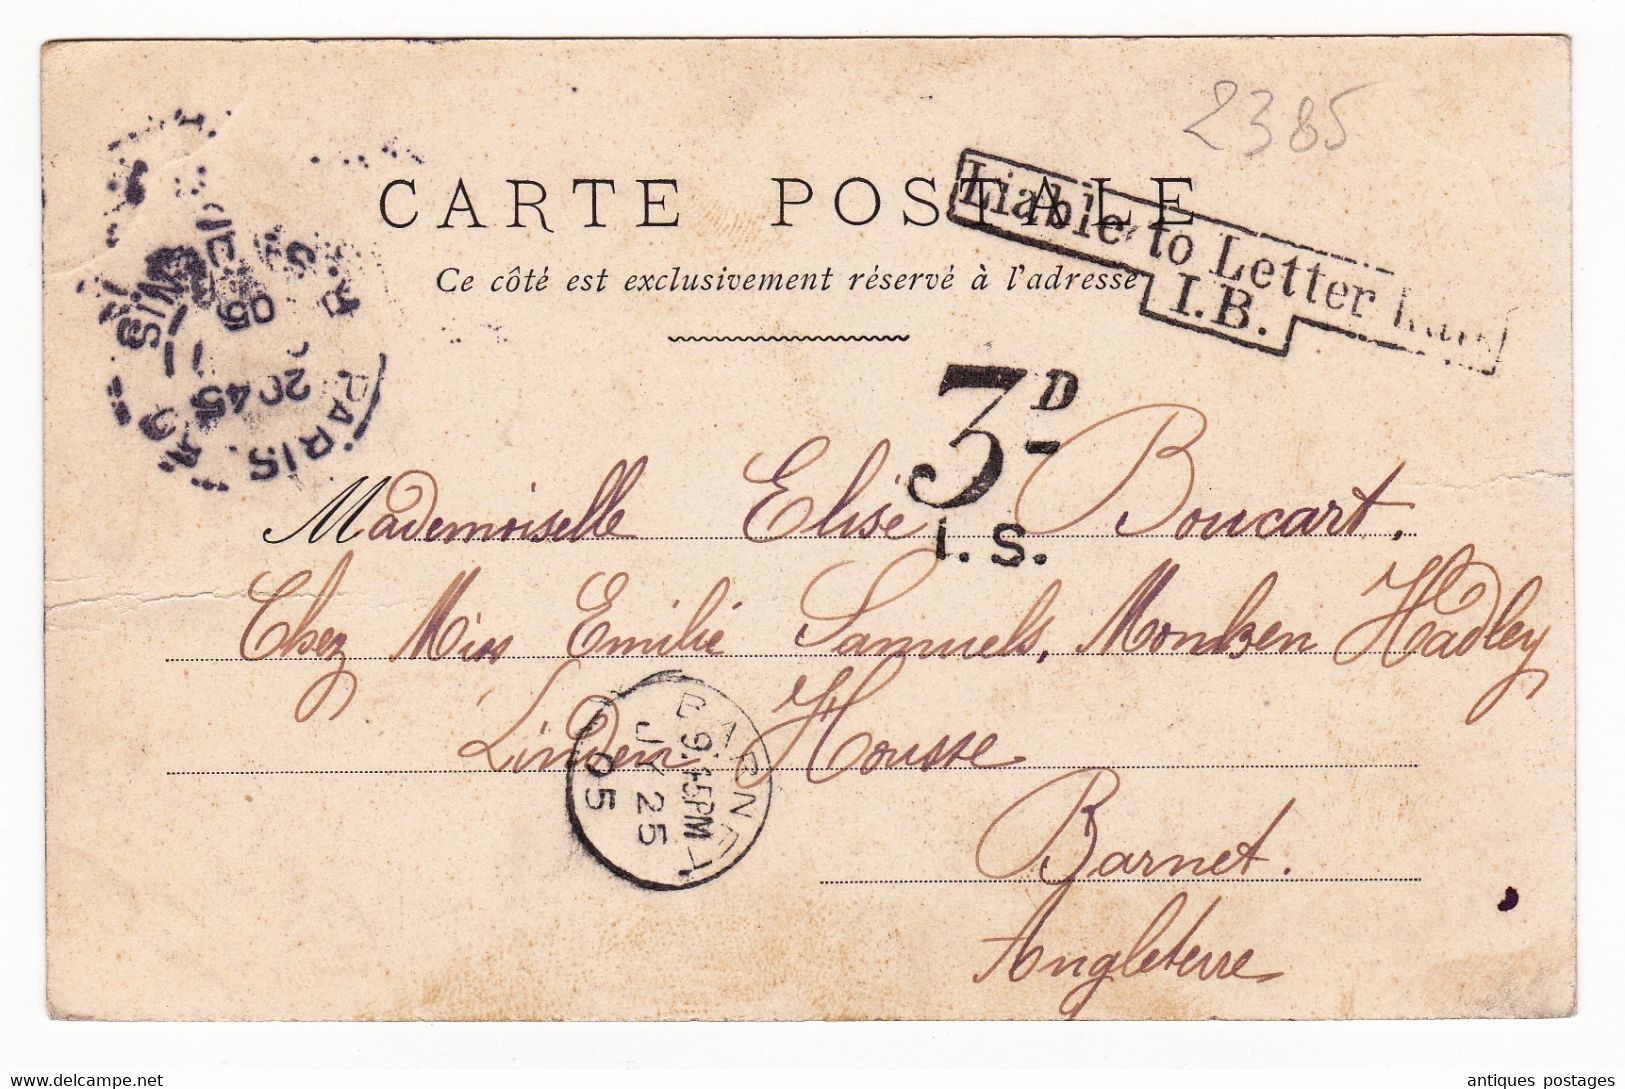 2385
CARTE POSTALE
Liable to Letter
I.B.
Ce côté est exclusivement réservé à l'adresse
3D
I.S.
PARIS
20 45
05
Mademoiselle Elise Boucart.
Chez Miss Emilie Samuels, Monken Hadley
Linden House
BARNET
9.45PM
JY 25
05
Barnet.
Angleterre
www.delcampe.net
antiques postages